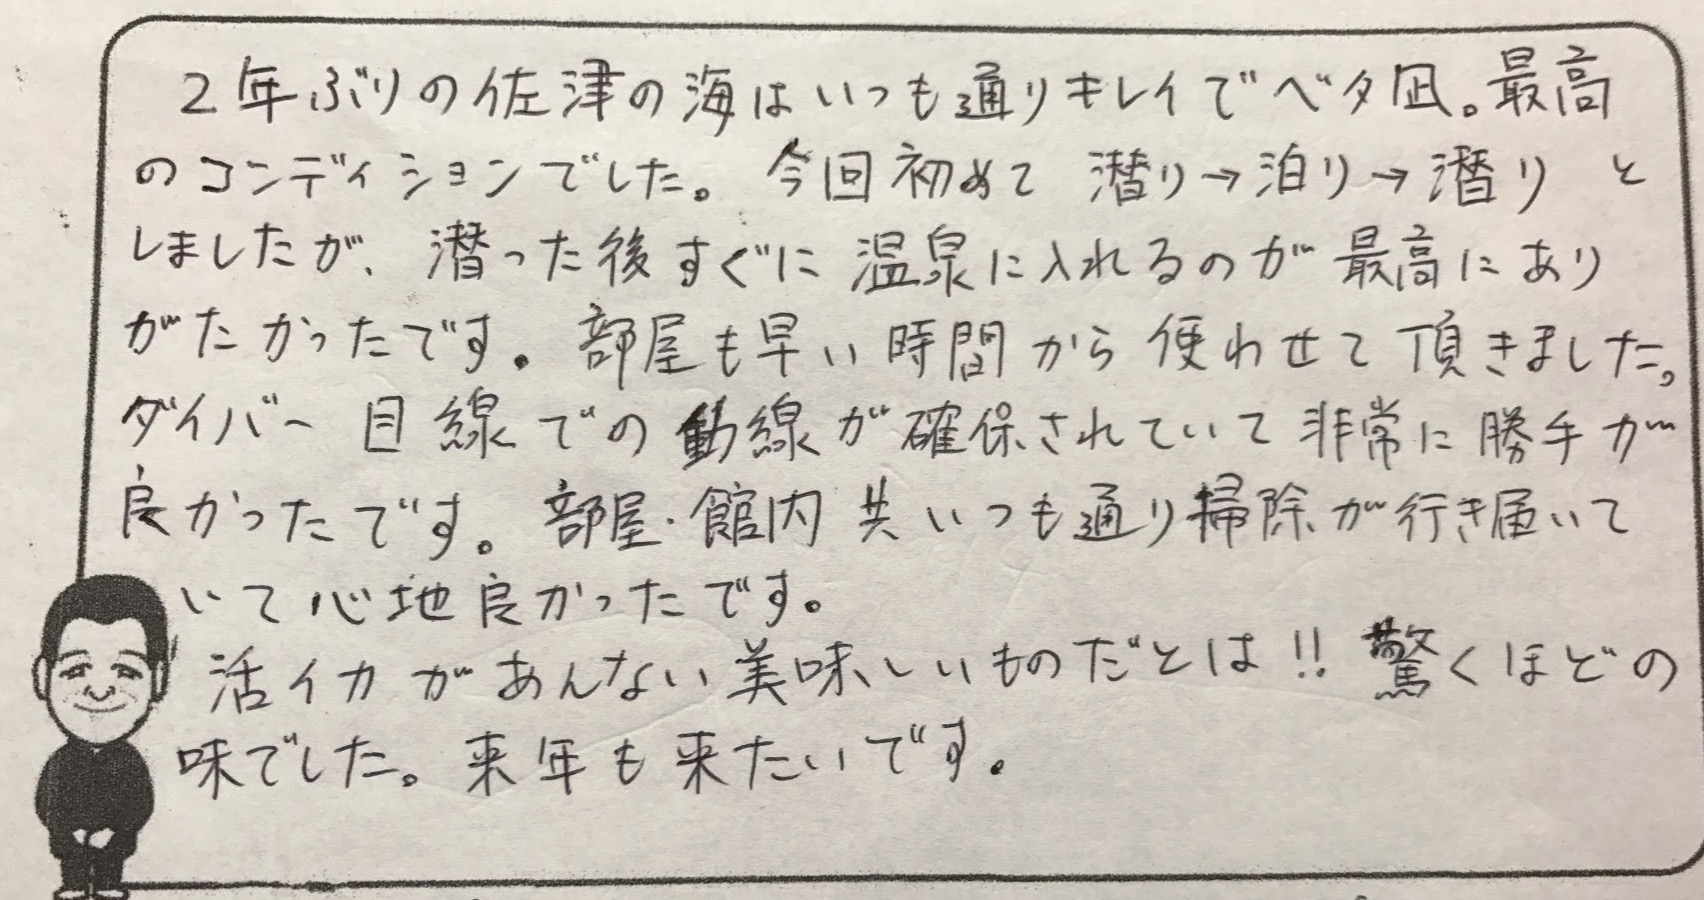 2年ぶりの佐津の海はいつも通りキレイでベタ凪。最高
のコンディションでした。今回初めて 潜り→泊り→潜り と
しましたが、潜った後すぐに温泉に入れるのが最高にあり
がたかったです。部屋も早い時間から使わせて頂きました。
ダイバー目線での動線が確保されていて非常に勝手が
良かったです。部屋・館内共いつも通り掃除が行き届いて
いて心地良かったです。
活イカがあんない美味しいものだとは!!驚くほどの
味でした。来年も来たいです。